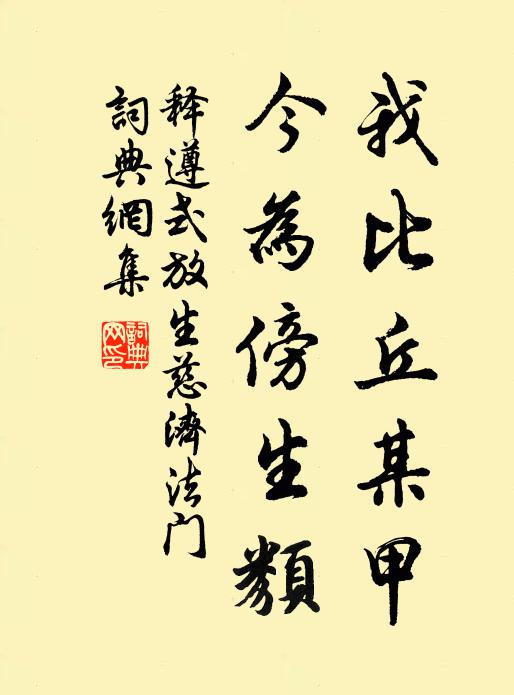 我比丘某甲
今為傍生類
释遵式放生慈濟法门
詞典網集
詞典網印